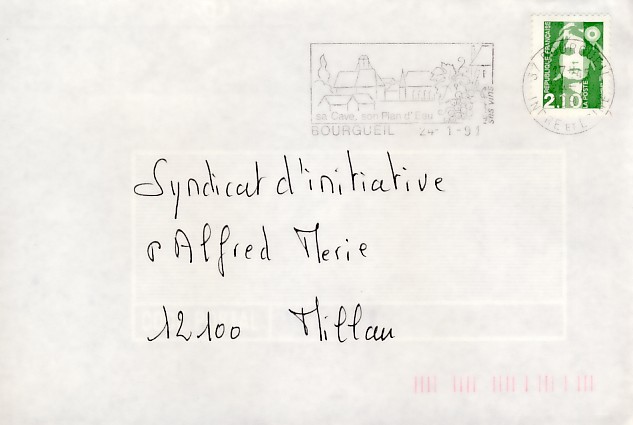 sa Cave, son Plan d'Eau
ses vins
BOURGUEIL 24-1-91
REPUBLIQUE FRANÇAISE
2,10
LA POSTE
INDRE ET
Syndicat d'initiative
r Alfred Merie
12100 Millau